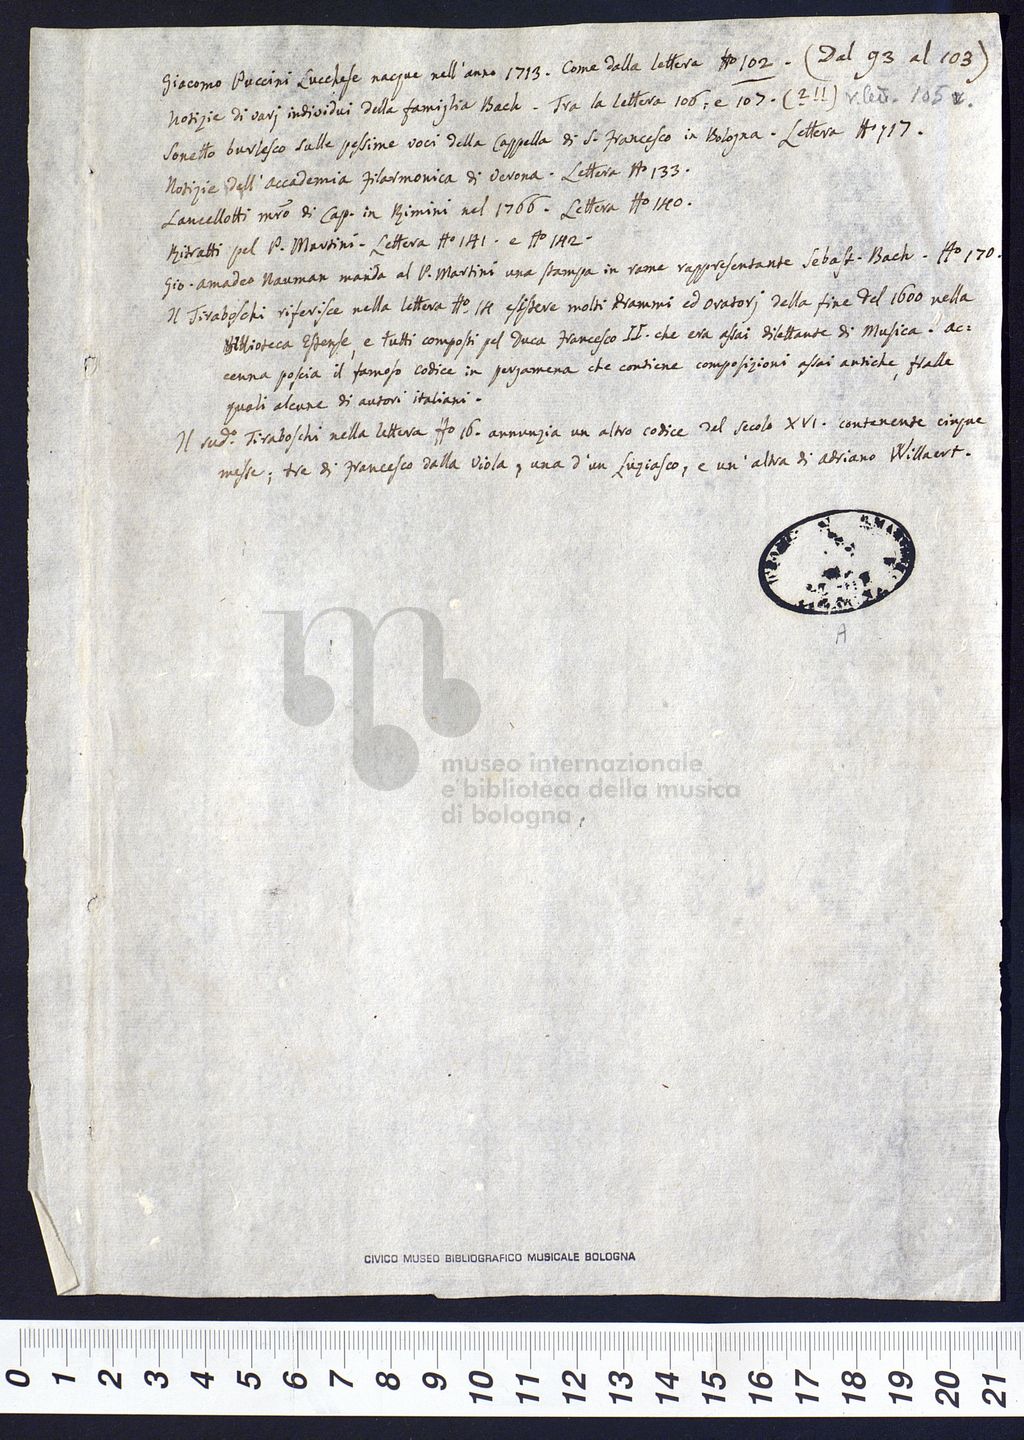 Giacomo Puccini Lucchese nacque nell'anno 1713. Come dalla lettera No 102. (Dal 93 al 103)
Notizie di varj individui della famiglia Bach. Tra la lettera 106, e 107. (211) v. lett. 105
Sonetto burlesco sulle pessime voci della Cappella di S. Francesco in Bologna. Lettera No 117.
Notizie dell'Accademia Filarmonica di Verona. Lettera No 133.
Lancellotti mro di Cap. in Rimini nel 1766. Lettera No 140.
Ritratti pel P. Martini. Lettera No 141. e No 142.
Gio. Amadeo Nauman manda al P. Martini una stampa in rame rappresentante Sebast. Bach. No 170.
Il Tiraboschi riferisce nella lettera No 14 esistere molti Drammi ed Oratorj della fine del 1600 nella
Biblioteca Estense, e tutti composti pel Duca Francesco II. che era assai dilettante di Musica. Ac=
cenna poscia il famoso codice in pergamena che contiene composizioni assai antiche, fralle
quali alcune di autori italiani.
Il sudo. Tiraboschi nella lettera No 16. annunzia un altro codice del secolo XVI. contenente cinque
messe; tre di Francesco dalla Viola, una d'un Luziasco, e un'altra di Adriano Willaert.
A
museo internazionale
e biblioteca della musica
di bologna
CIVICO MUSEO BIBLIOGRAFICO MUSICALE BOLOGNA
0 1 2 3 4 5 6 7 8 9 10 11 12 13 14 15 16 17 18 19 20 21